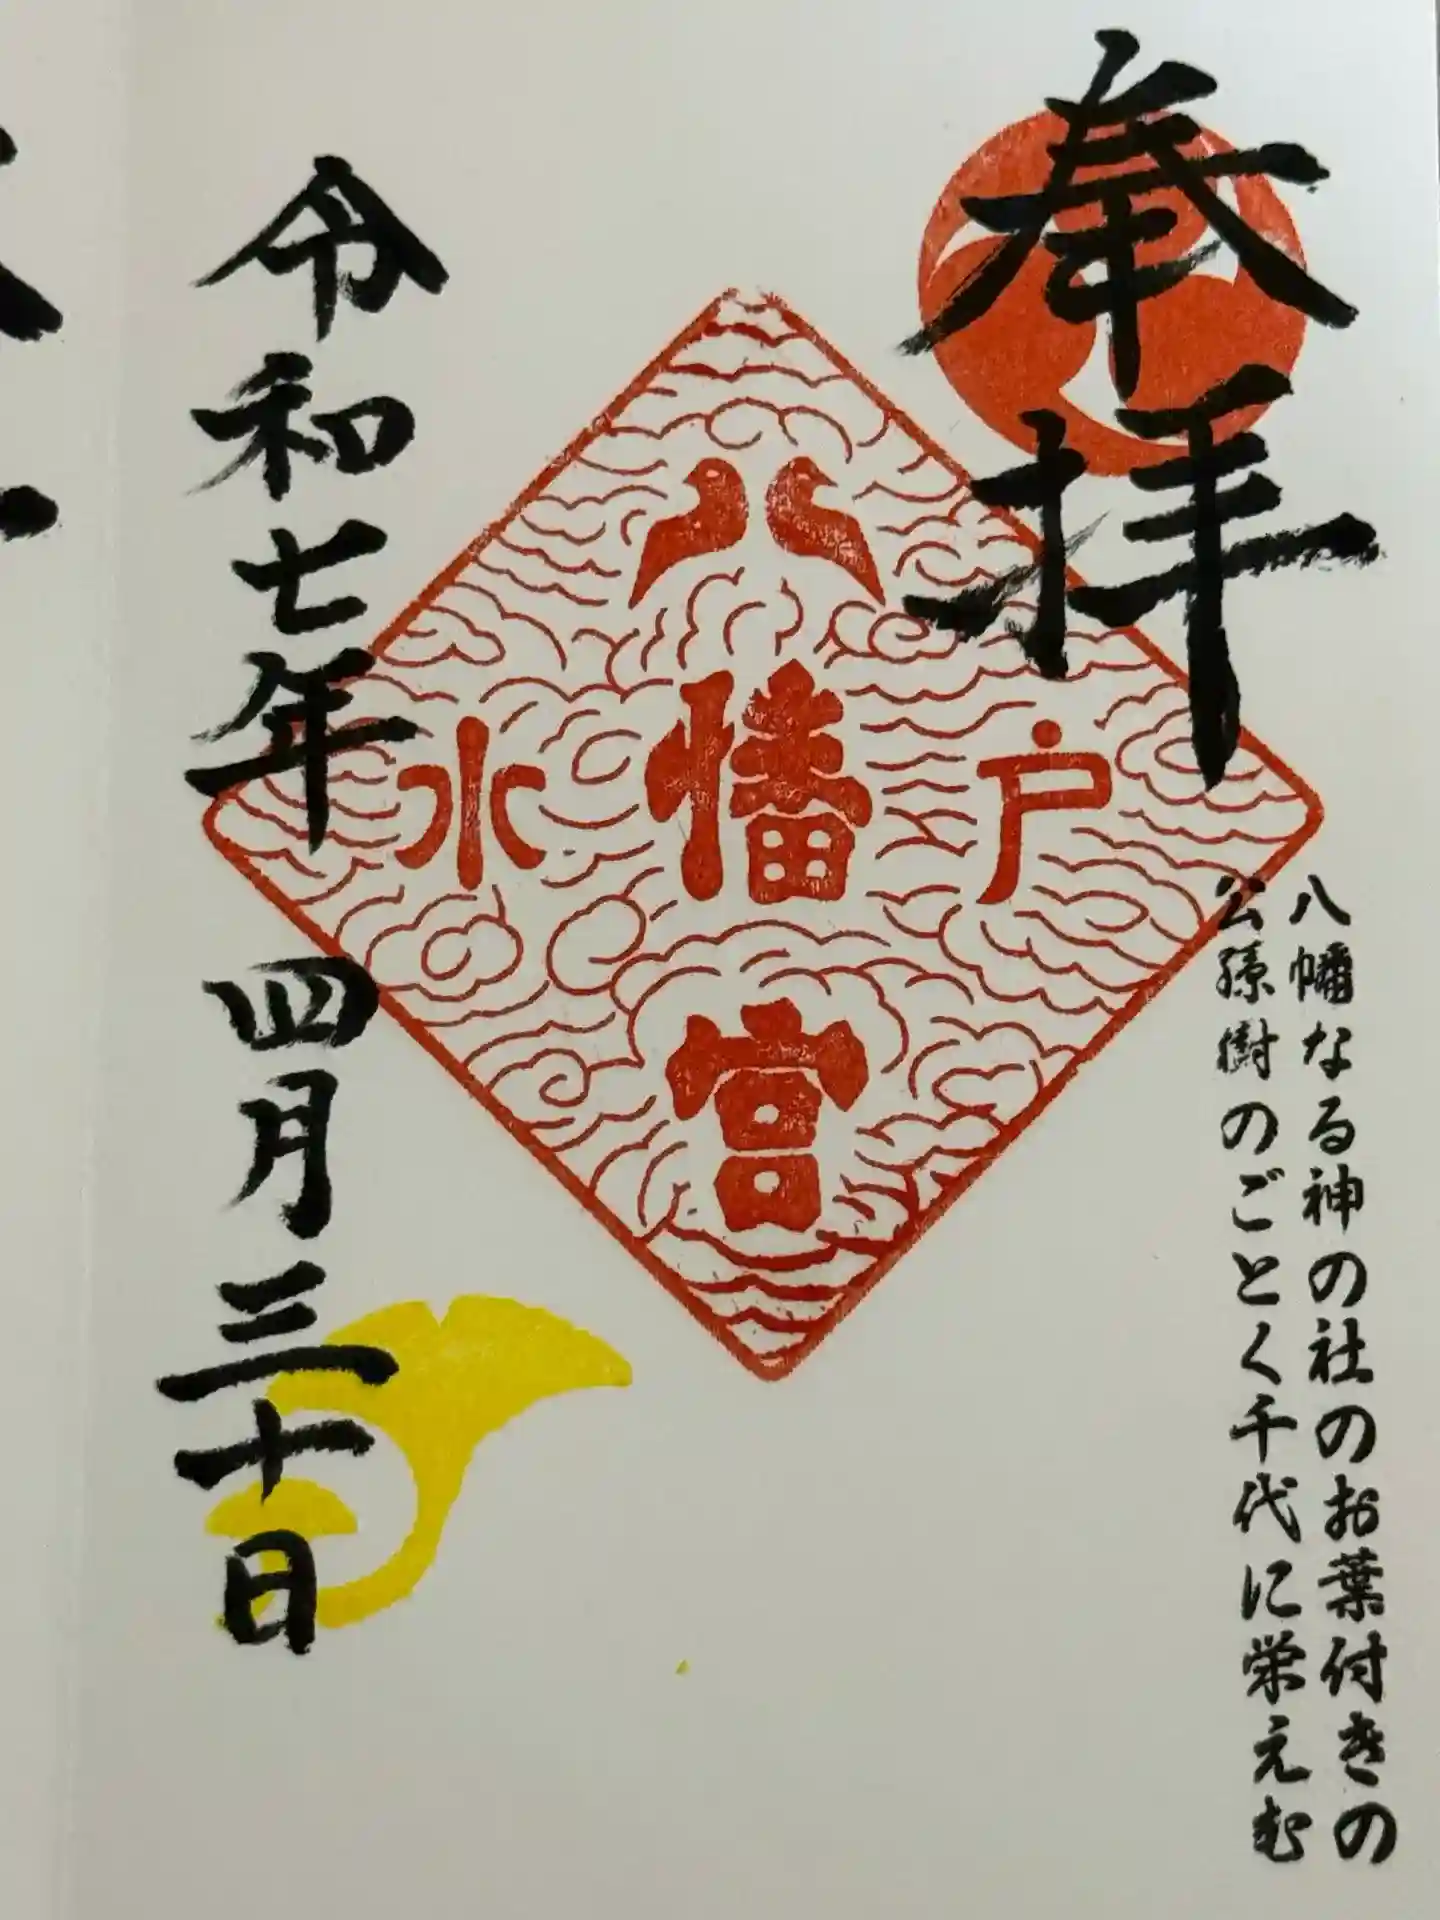 奉拝
八幡なる神の社のお葉付きの
公孫樹のごとく千代に栄えむ
水戸
八幡宮
令和七年
四月三十日